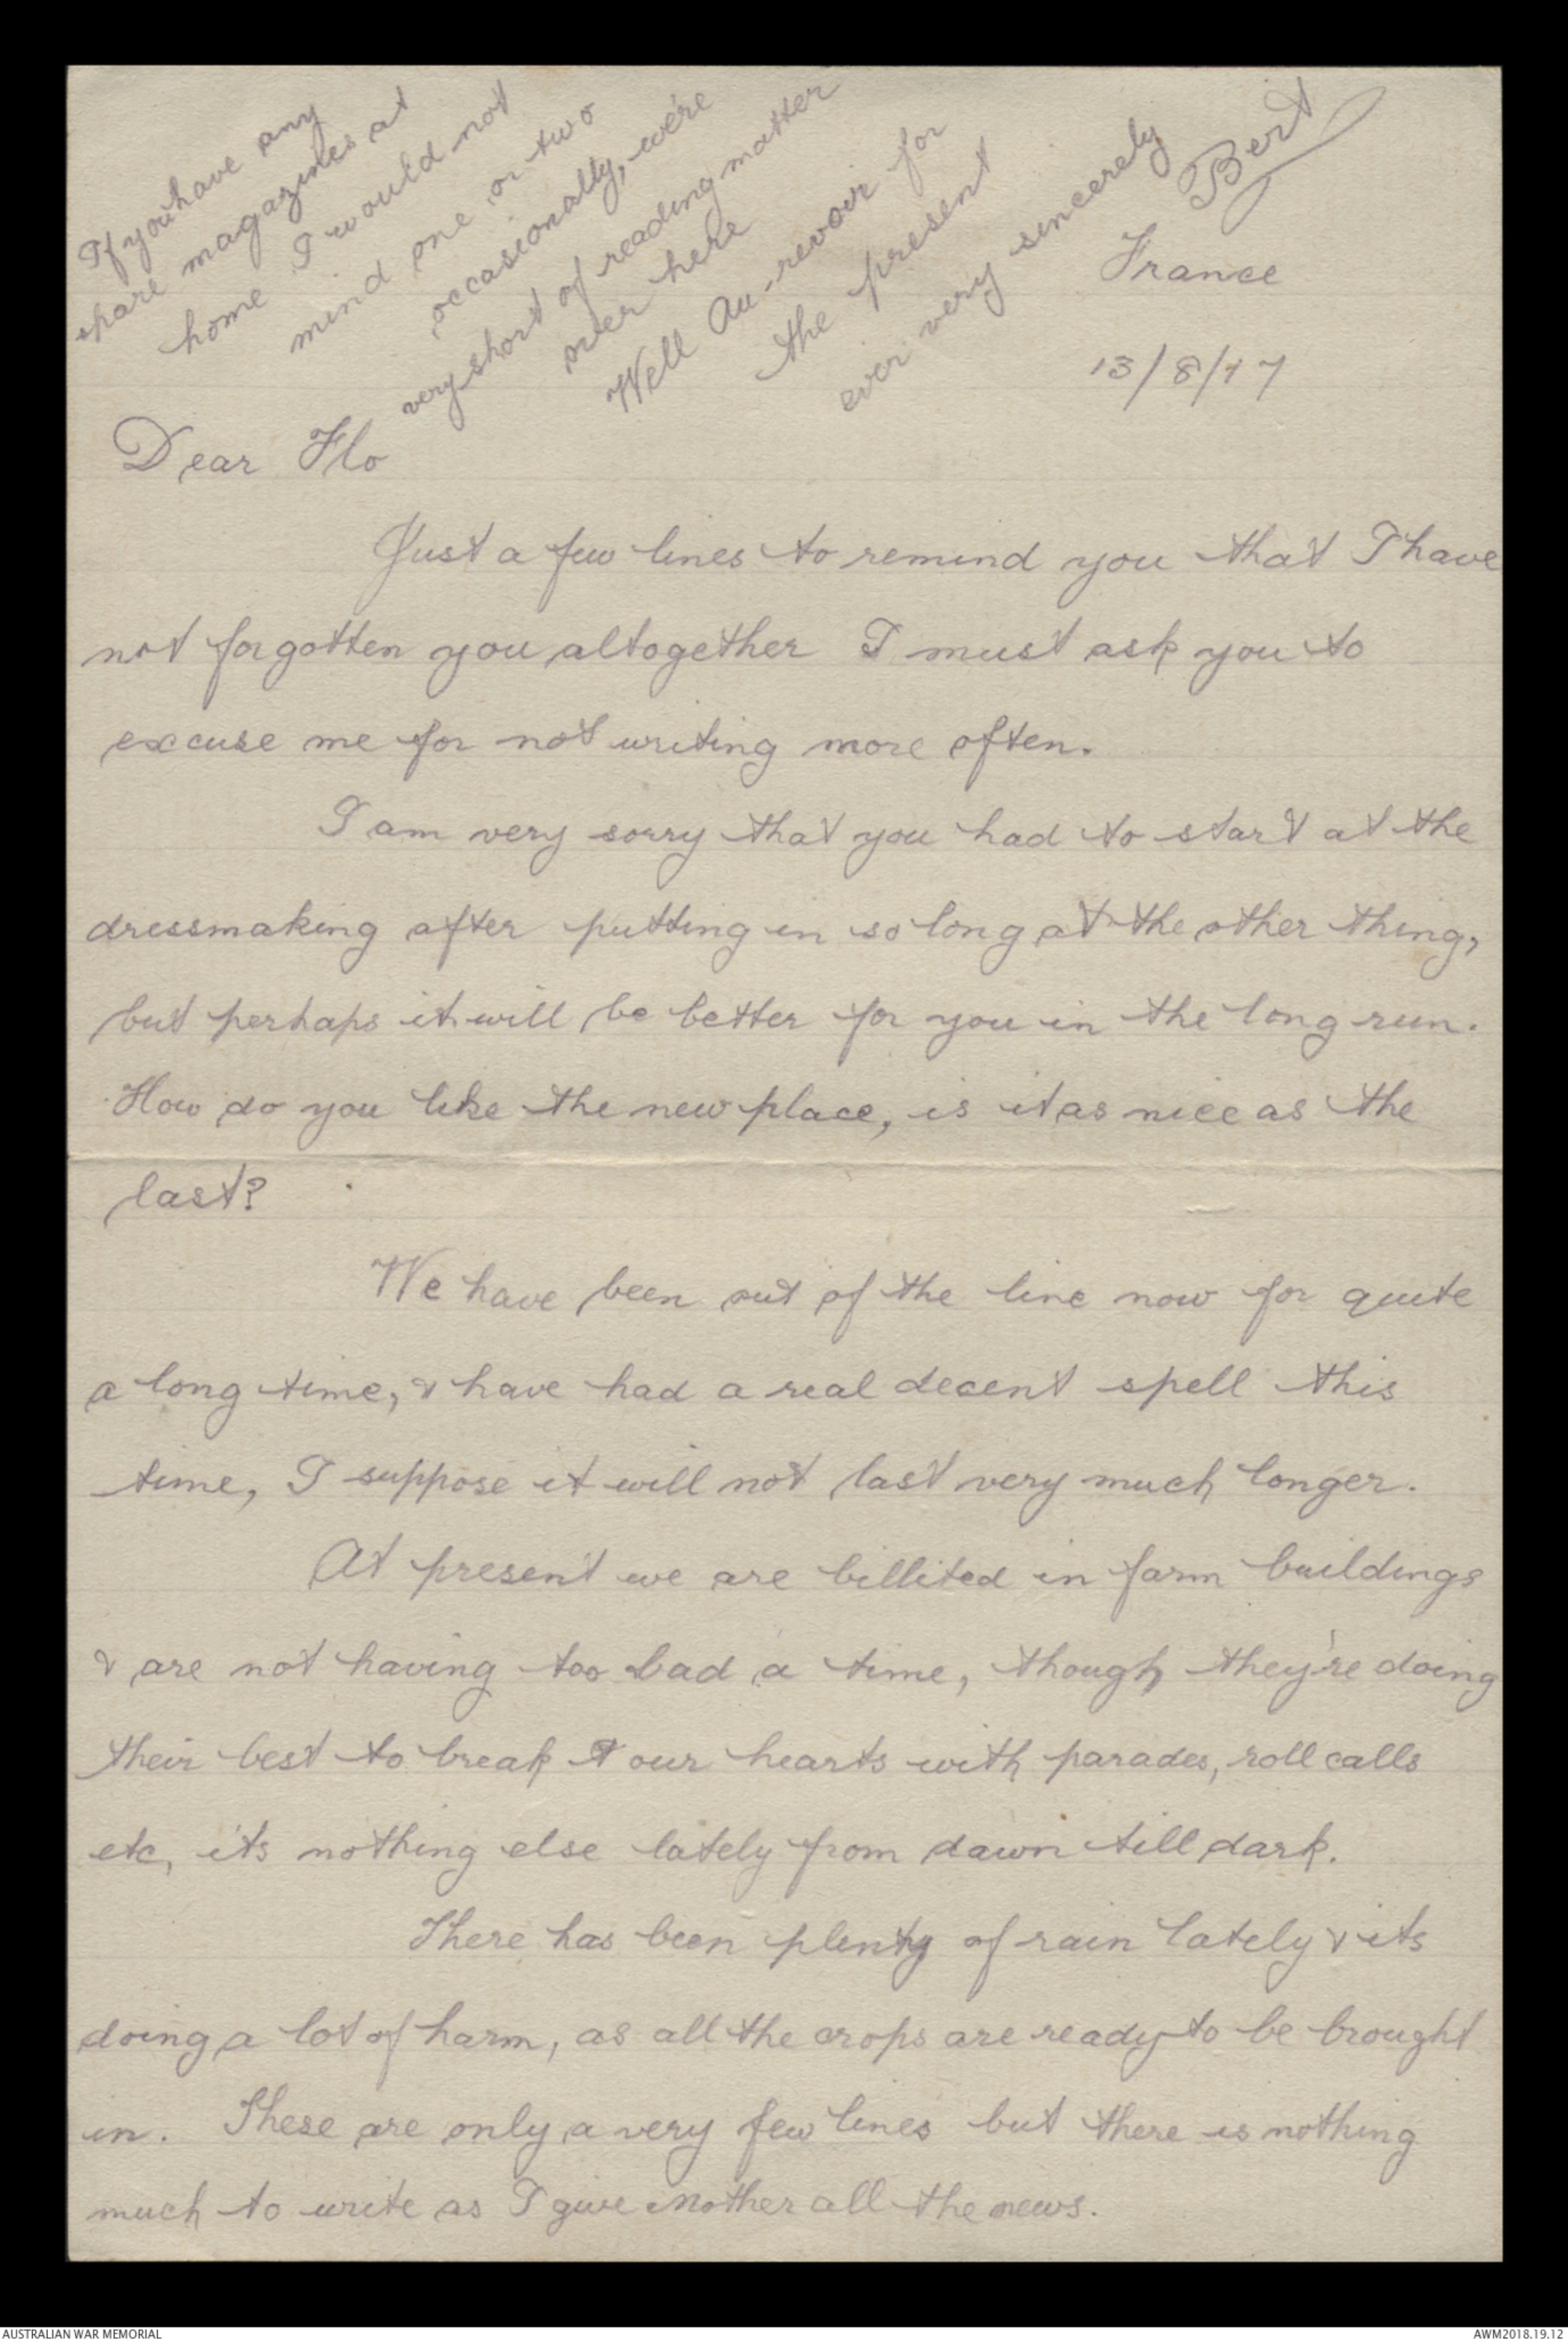 France
13/8/17
Dear Flo
Just a few lines to remind you that I have
not forgotten you altogether I must ask you to
excuse me for not writing more often.
I am very sorry that you had to start at the
dressmaking after putting in so long at the other thing,
but perhaps it will be better for you in the long run.
How do you like the new place, is it as nice as the
last?
We have been out of the line now for quite
a long time, & have had a real decent spell this
time, I suppose it will not last very much longer.
At present we are billited in farm buildings
& are not having too bad a time, though they're doing
their best to break our hearts with parades, roll calls
etc, its nothing else lately from dawn till dark.
There has been plenty of rain lately & its
doing a lot of harm, as all the crops are ready to be brought
in. These are only a very few lines but there is nothing
much to write as I give Mother all the news.
If you have any
spare magazines at
home I would not
mind one or two
occasionally, we're
very short of reading matter
over here
Well Au-revoir for
the present
ever very sincerely
Bert
AUSTRALIAN WAR MEMORIAL
AWM2018.19.12